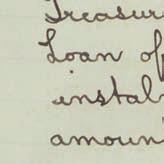 Treasure
Loan of
instal
amoun